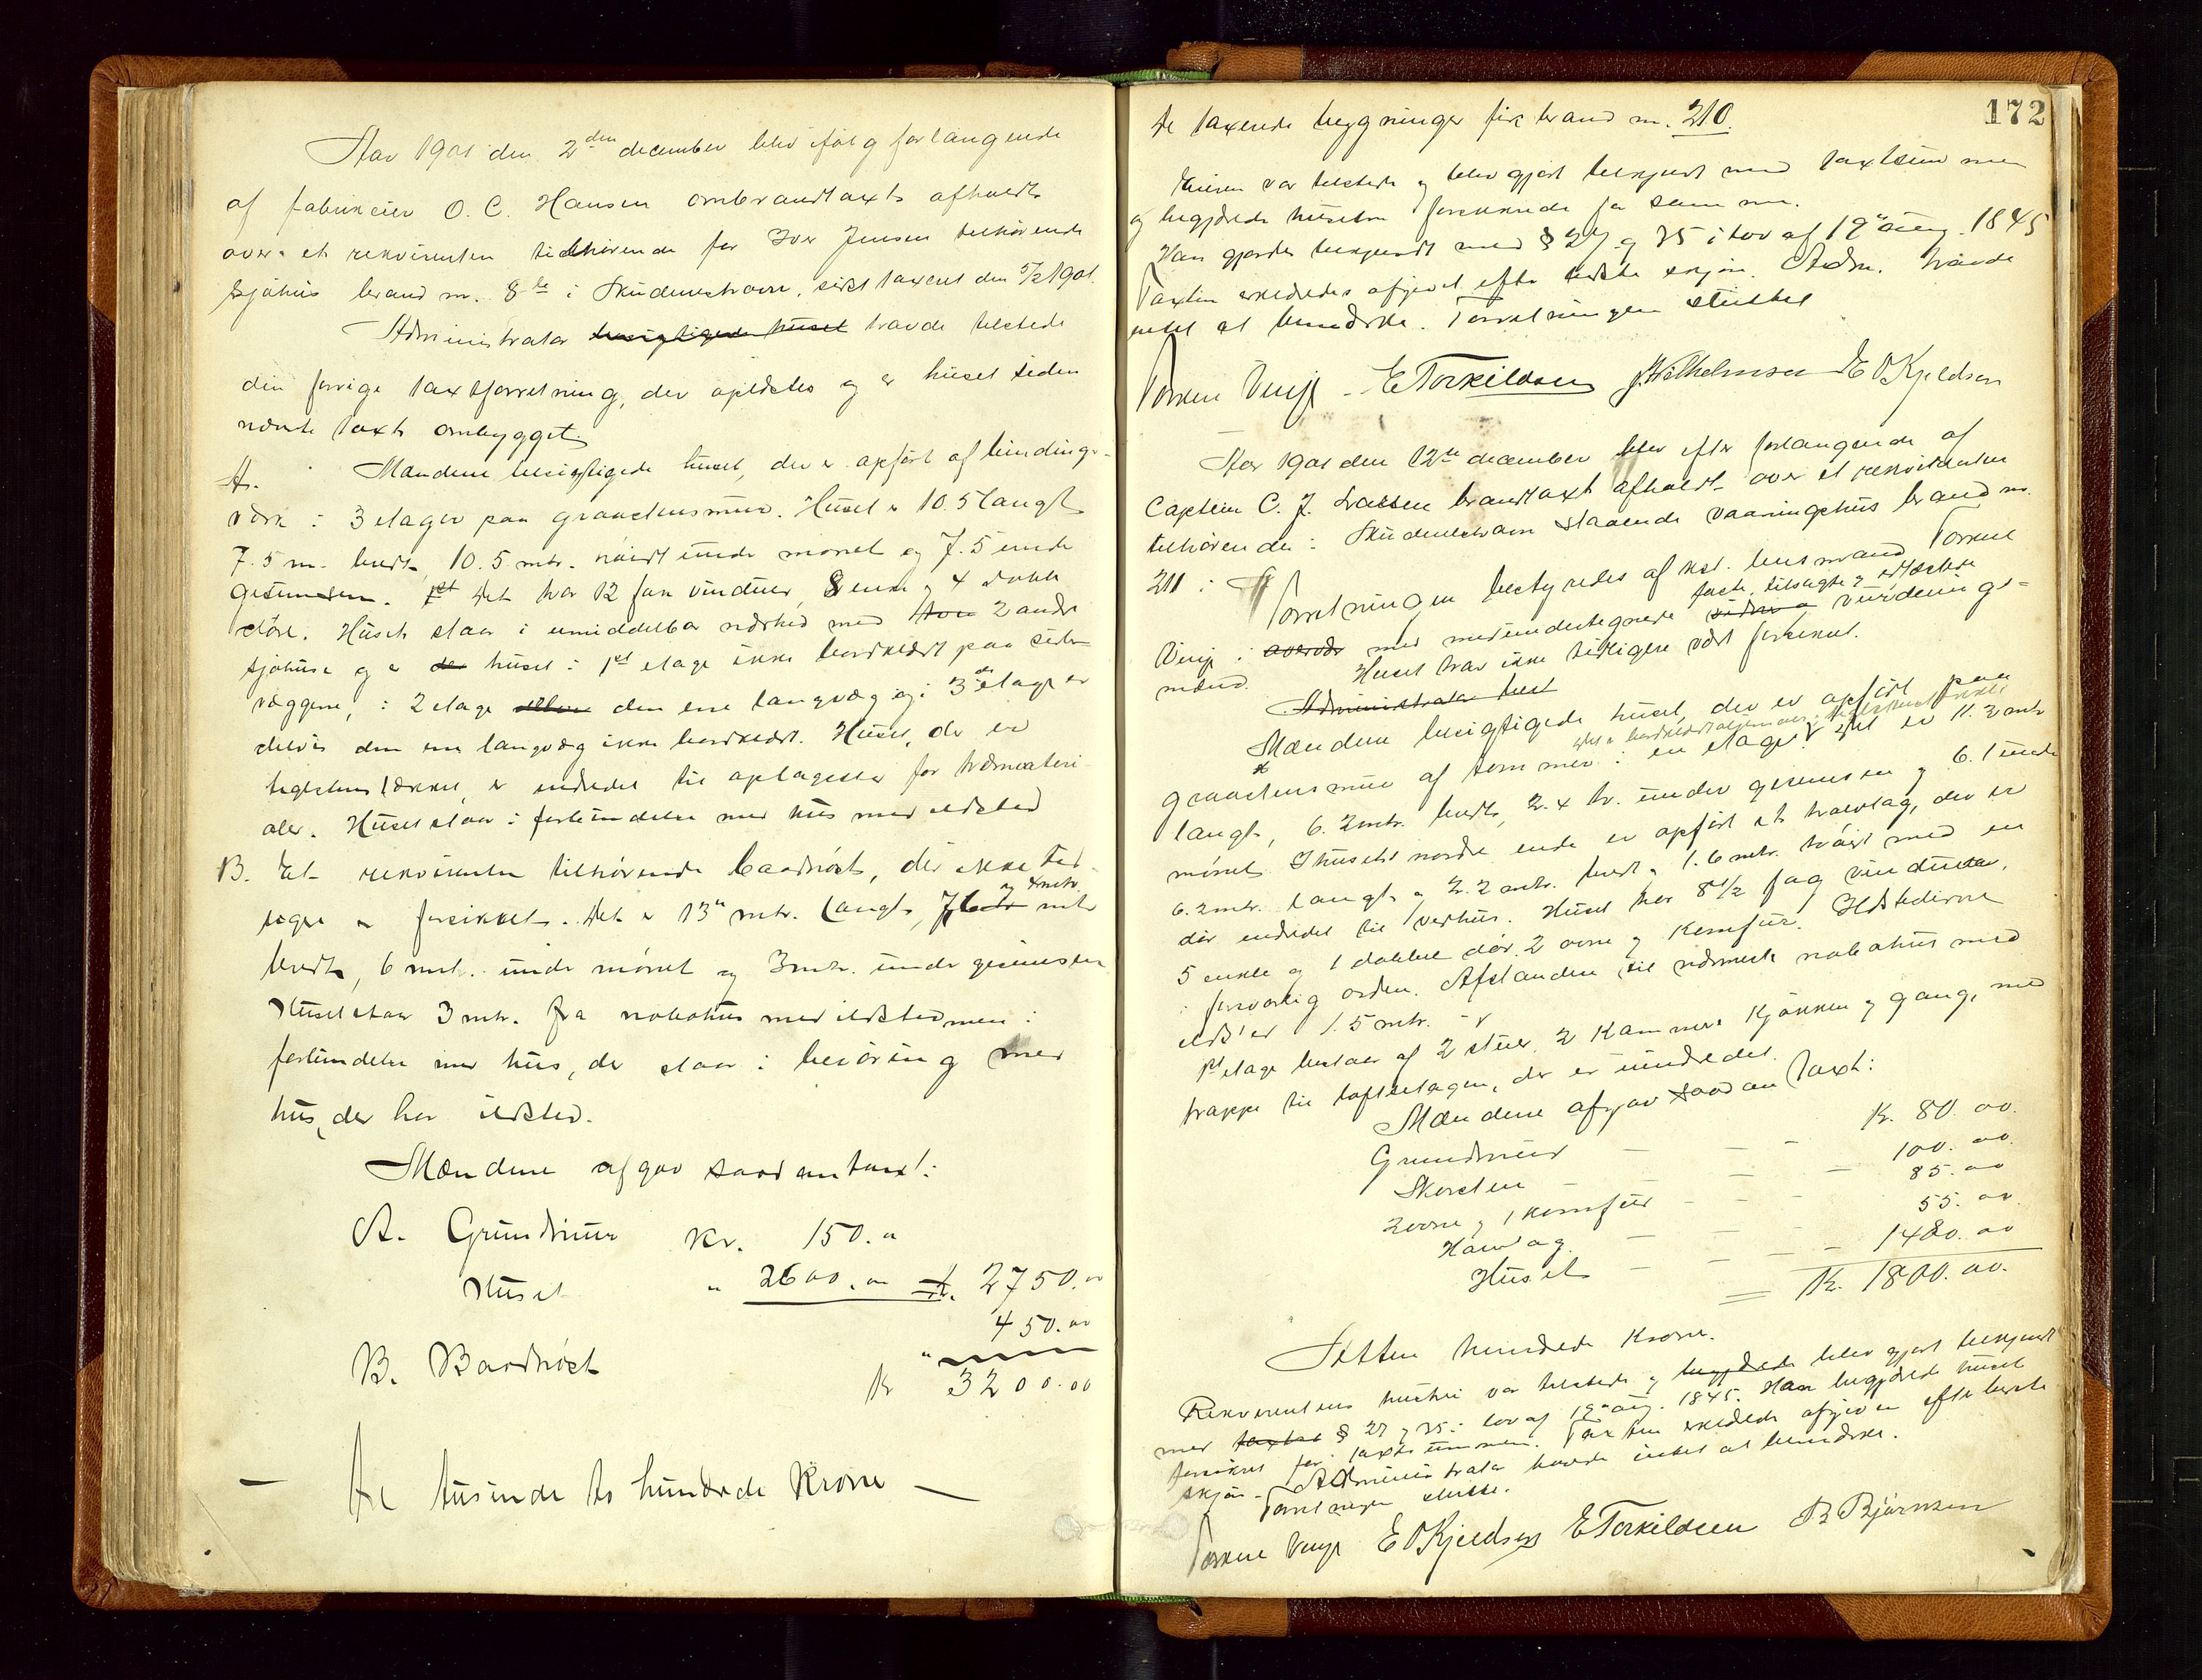 Aar 1901 den 2den december blev ifölg forlangende
af fabrikeier O. C. Hansen ombrandtaxt afholdt
over et rekvirenten tilhörende för Iver Jensen tilhörende
sjöhus brand nr. 8de i Skudeneshavn, sidst taxeret den 5/2 1901.
Administrator besigtigede huset havde tilstede
den forrige taxtforretning, der oplæstes og er huset siden
nævnte taxt ombygget.
A. Mændene besigtigede huset, der er opfört af bindings-
værk i 3 etager paa graastensmur. Huset er 10.5 langt
7.5 m. bredt, 10.5 mtr. höidt under mönet og 7.5 under
gesimsen. Det har 12 fag vinduer, 8 enk. og 4 dobb.
döre. Huset staar i umiddelbar nærhed med 2 andre
sjöhuse og er huset i 1st etage ikke bordklædt paa side-
væggene, i 2 etage den ene langvæg og i 3de etage er
delvis den ene langvæg ikke bordklædt. Huset, der er
teglstenstækket, er indredet til oplagssted for træmateri-
aler. Huset staar i forbindelse med hus med ildsted
B. Et rekvirenten tilhörende baadnöst, der ikke tid-
ligere er forsikret. Det er 13" mtr. langt, 7 mtr
bredt, 6 mtr. under mönet og 3 mtr. under gesimsen
Huset staar 3 mtr. fra nabohus med ildsted men i
forbindelse med hus, der staar i beröring med
hus, der har ildsted.
Mændene afgav saadan taxt:
A. Grundmur Kr. 150."
Huset " 2600.00 Kr. 2750.00
B. Baadnöst " 450.00
Kr 3200.00
— Tre tusinde to hundrede Kroner —
172
De taxerede bygninger fik brand nr. 210.
Eieren var tilstede og blev gjort bekjendt med taxtsummen
og begjærede husene forsikrede for samme.
Han gjordes bekjendt med § 27 og 35 i lov af 19de aug. 1845
Taxten erklæredes afgivet efter bedste skjön. Adm. havde
intet at bemærke. Forretningen sluttet
Torkel Vinje E Torkildsen J. Wilhelmsen E O Kjeldsen
Aar 1901 den 12te december blev efter forlangende af
Captein C. J. Larsen brandtaxt afholdt over et rekvirenten
tilhörende i Skudeneshavn staaende vaaningshus brand nr.
211 i
Forretningen bestyredes af kst. lensmand Torkel
Vinje i overvær med medundertegnede faste, tilsagte og edfæstede vurderings-
mænd. Huset har ikke tidligere vært forsikret.
Administrator hest
Mændene besigtigede huset, der er opfört paa
graastensmur af tömmer i en etage. Det er 11.3 mtr
langt, 6.2 mtr. bredt, 2.4 tr. under gesimsen og 6.1 under
mönet. I husets nordre ende er opfört et halvtag, der er
6.2 mtr. langt og 2.2 mtr. bredt og 1.6 mtr. höit med en
dör indredet til vedhus. Huset har 8 1/2 fag vinduer,
5 enkle og 1 dobbel dör. 2 ovne og Komfur. Ildstederne
i forsvarlig orden. Afstanden til nærmeste nabohus med
ilds. er 1.5 mtr.
1st etage bestaar af 2 stuer, 2 Kammere Kjökken og gang, med
trappe til loftsetagen, der er uindredet.
Mændene afgav saadan taxt:
Grundmur — — — Kr. 80.00.
Skorsten — — — 100.00
2 ovne og 1 komfur — — — 85.00
Halvtag — — — 55.00
Huset — — — 1480.00
Kr. 1800.00.
Atten hundrede Kroner.
Rekvirentens hustru var tilstede og begjærede blev gjort bekjendt
med taxten § 27 og 35 i lov af 19de aug. 1845. Han begjærede huset
forsikret for taxtsummen. Taxten erklæredes afgiven efter bedste
skjön. Administrator havde intet at bemærke.
Forretningen sluttet.
Torkel Vinje E O Kjeldsen E Torkildsen B Björnsen